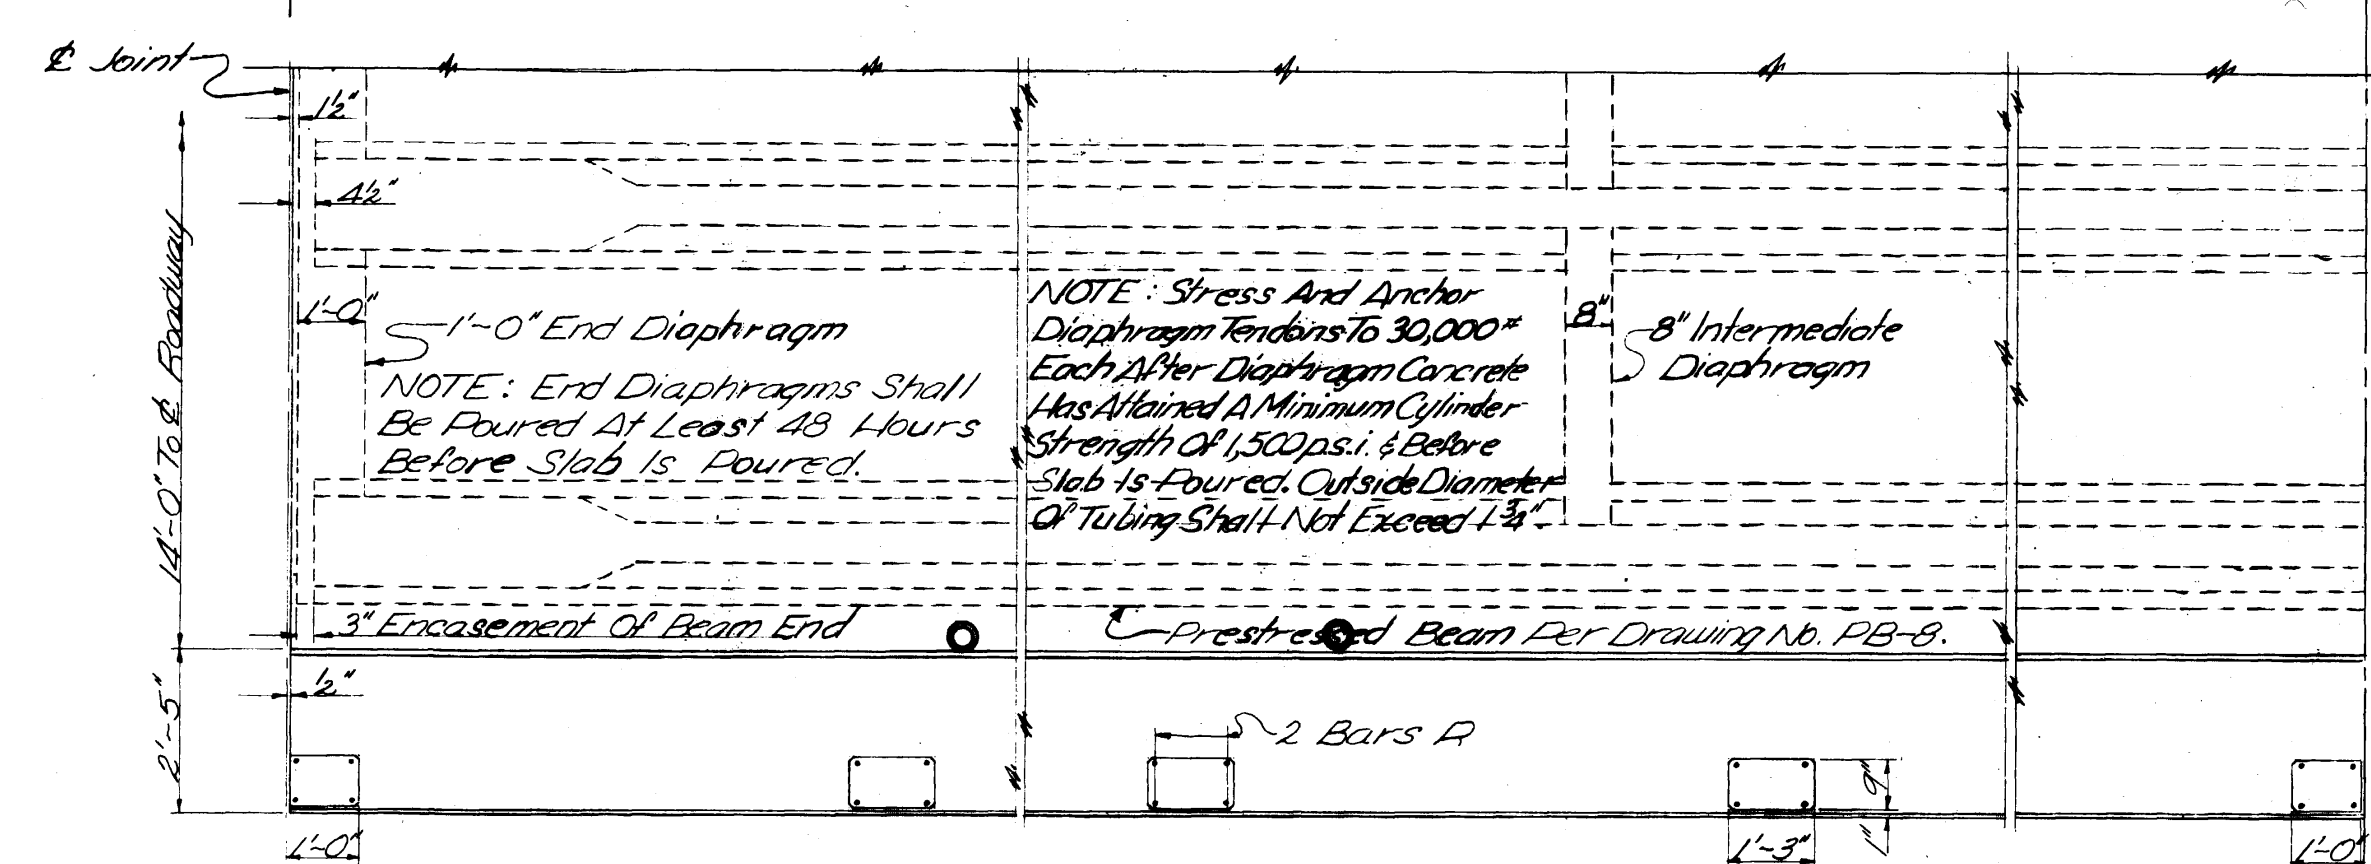 ℄ Joint
1½"
4½"
14'-0" To ℄ Roadway
1'-0"
1'-0" End Diaphragm
NOTE: End Diaphragms Shall
Be Poured At Least 48 Hours
Before Slab Is Poured.
NOTE: Stress And Anchor
Diaphragm Tendons To 30,000#
Each After Diaphragm Concrete
Has Attained A Minimum Cylinder
Strength Of 1,500 p.s.i. & Before
Slab Is Poured. Outside Diameter
Of Tubing Shall Not Exceed 1¾"
8"
8" Intermediate
Diaphragm
3" Encasement Of Beam End
Prestressed Beam Per Drawing No. PB-8.
½"
2'-5"
2 Bars
9"
1"
1'-0"
1'-3"
1'-0"